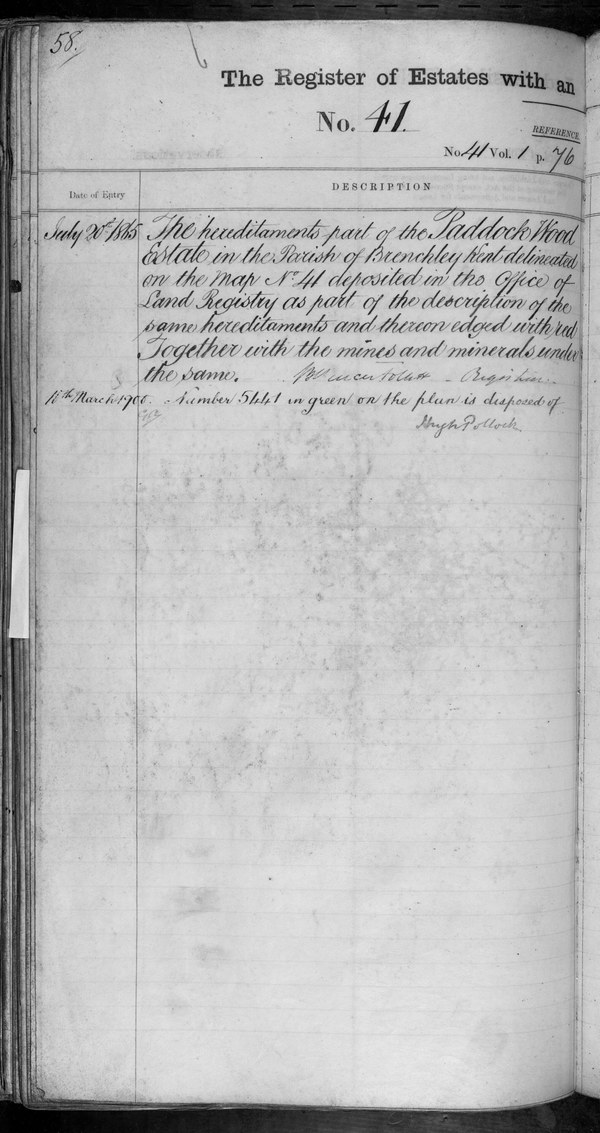 58.
The Register of Estates with an
No. 41.
REFERENCE.
No. 41 Vol. 1 p. 76
Date of Entry
DESCRIPTION
July 20th 1865 The hereditaments part of the Paddock Wood
Estate in the Parish of Brenchley Kent delineated
on the Map No. 41 deposited in the Office of
Land Registry as part of the description of the
same hereditaments and thereon edged with red
Together with the mines and minerals under
the same.
March 1900. Number 5441 in green on the plan is disposed of
Hugh Pollock